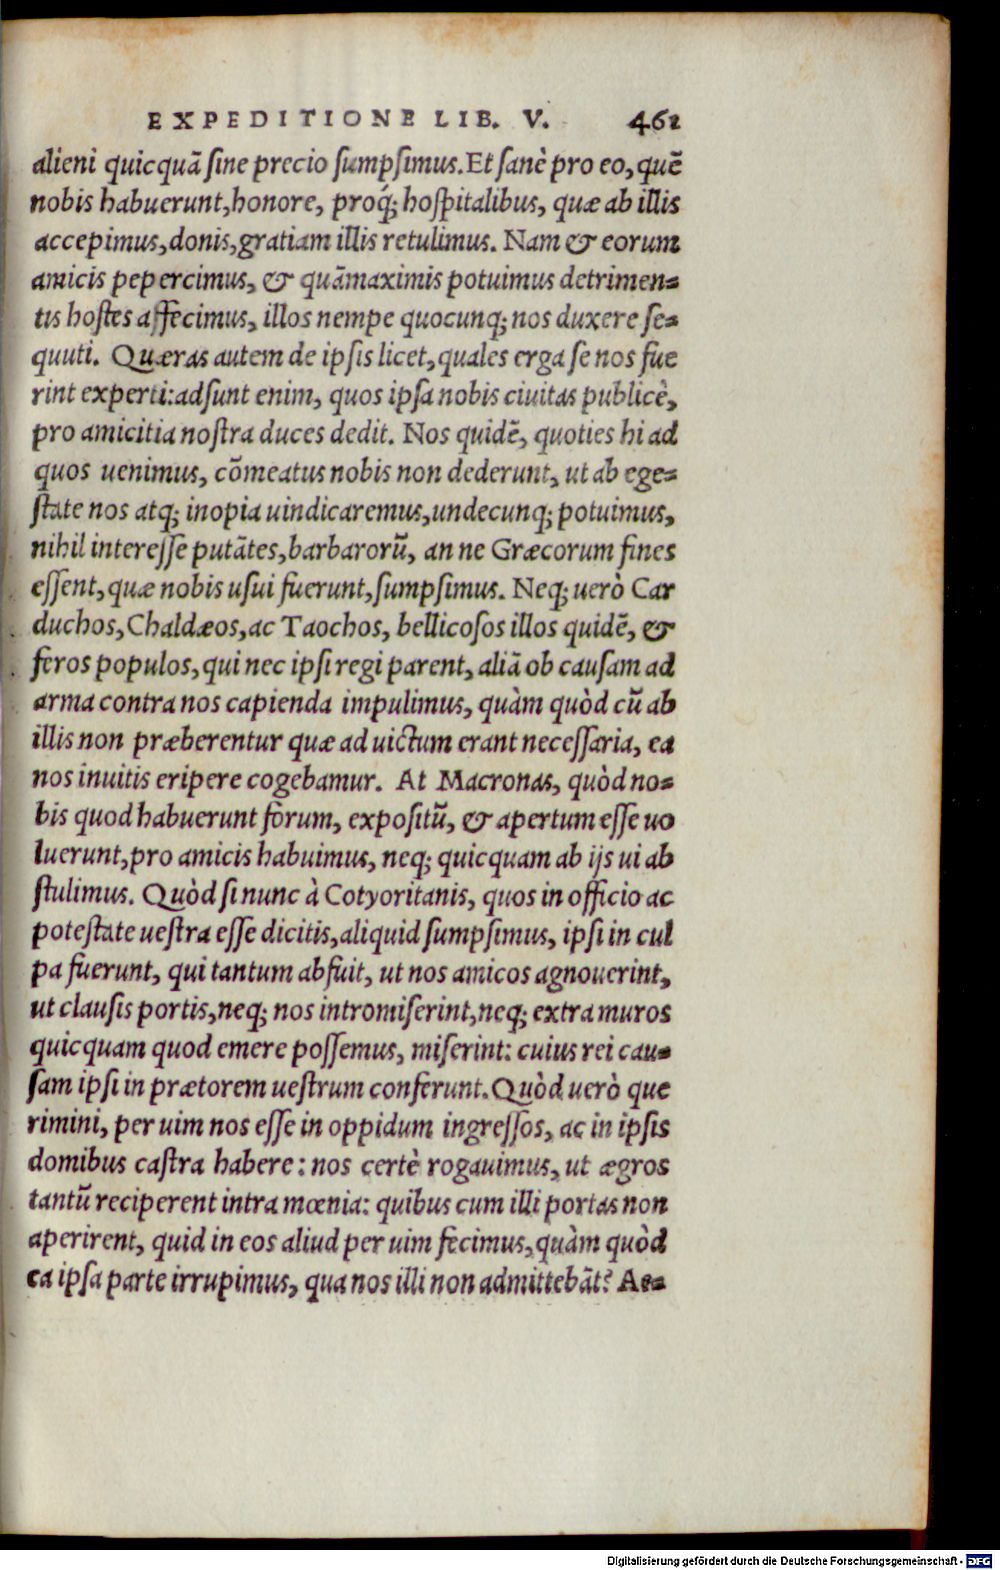 EXPEDITIONE LIB. V. 461
alieni quicquã sine precio sumpsimus. Et sanè pro eo, quẽ
nobis habuerunt, honore, proq́; hospitalibus, quæ ab illis
accepimus, donis, gratiam illis retulimus. Nam & eorum
amicis pepercimus, & quãmaximis potuimus detrimen-
tis hostes affecimus, illos nempe quocunq; nos duxere se-
quuti. Quæras autem de ipsis licet, quales erga se nos fue
rint experti: adsunt enim, quos ipsa nobis ciuitas publicè,
pro amicitia nostra duces dedit. Nos quidẽ, quoties hi ad
quos uenimus, cõmeatus nobis non dederunt, ut ab ege-
state nos atq; inopia uindicaremus, undecunq; potuimus,
nihil interesse putãtes, barbarorũ, an ne Græcorum fines
essent, quæ nobis usui fuerunt, sumpsimus. Neq; uerò Car
duchos, Chaldæos, ac Taochos, bellicosos illos quidẽ, &
feros populos, qui nec ipsi regi parent, aliã ob causam ad
arma contra nos capienda impulimus, quàm quòd cũ ab
illis non præberentur quæ ad uictum erant necessaria, ea
nos inuitis eripere cogebamur. At Macronas, quòd no-
bis quod habuerunt forum, expositũ, & apertum esse uo
luerunt, pro amicis habuimus, neq; quicquam ab ijs ui ab
stulimus. Quòd si nunc à Cotyoritanis, quos in officio ac
potestate uestra esse dicitis, aliquid sumpsimus, ipsi in cul
pa fuerunt, qui tantum abfuit, ut nos amicos agnouerint,
ut clausis portis, neq; nos intromiserint, neq; extra muros
quicquam quod emere possemus, miserint: cuius rei cau-
sam ipsi in prætorem uestrum conferunt. Quòd uerò que
rimini, per uim nos esse in oppidum ingressos, ac in ipsis
domibus castra habere: nos certè rogauimus, ut ægros
tantũ reciperent intra mœnia: quibus cum illi portas non
aperirent, quid in eos aliud per uim fecimus, quàm quòd
ea ipsa parte irrupimus, qua nos illi non admittebãt? Ac-
Digitalisierung gefördert durch die Deutsche Forschungsgemeinschaft - DFG